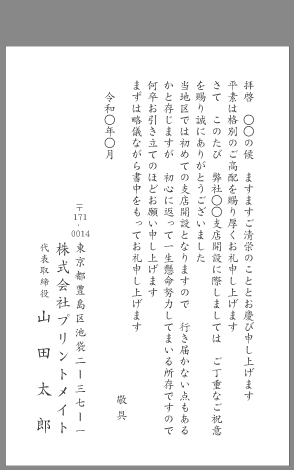 拝啓　〇〇の候　ますますご清栄のこととお慶び申し上げます
平素は格別のご高配を賜り厚くお礼申し上げます
さて　このたび　弊社〇〇支店開設に際しましては　ご丁重なご祝意
を賜り誠にありがとうございました
当地区では初めての支店開設となりますので　行き届かない点もある
かと存じますが　初心に返って一生懸命努力してまいる所存ですので
何卒お引き立てのほどお願い申し上げます
まずは略儀ながら書中をもってお礼申し上げます
敬具
令和〇年〇月
〒171-0014
東京都豊島区池袋二ー三七ー一
株式会社プリントメイト
代表取締役　山田太郎